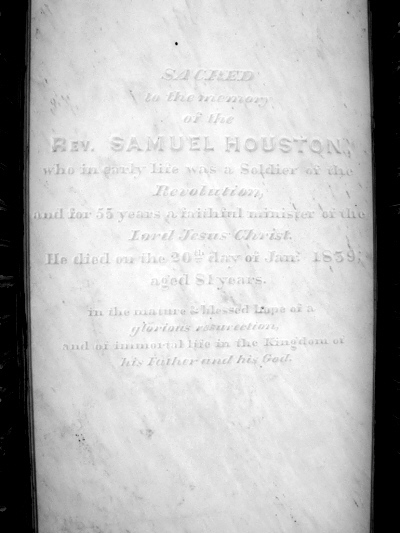 SACRED
to the memory
of the
REV. SAMUEL HOUSTON,
who in early life was a Soldier of the
Revolution,
and for 55 years a faithful minister of the
Lord Jesus Christ.
He died on the 20th day of Jany. 1839,
aged 81 years.
In the mature & blessed hope of a
glorious resurrection,
and of immortal life in the Kingdom of
his Father and his God.